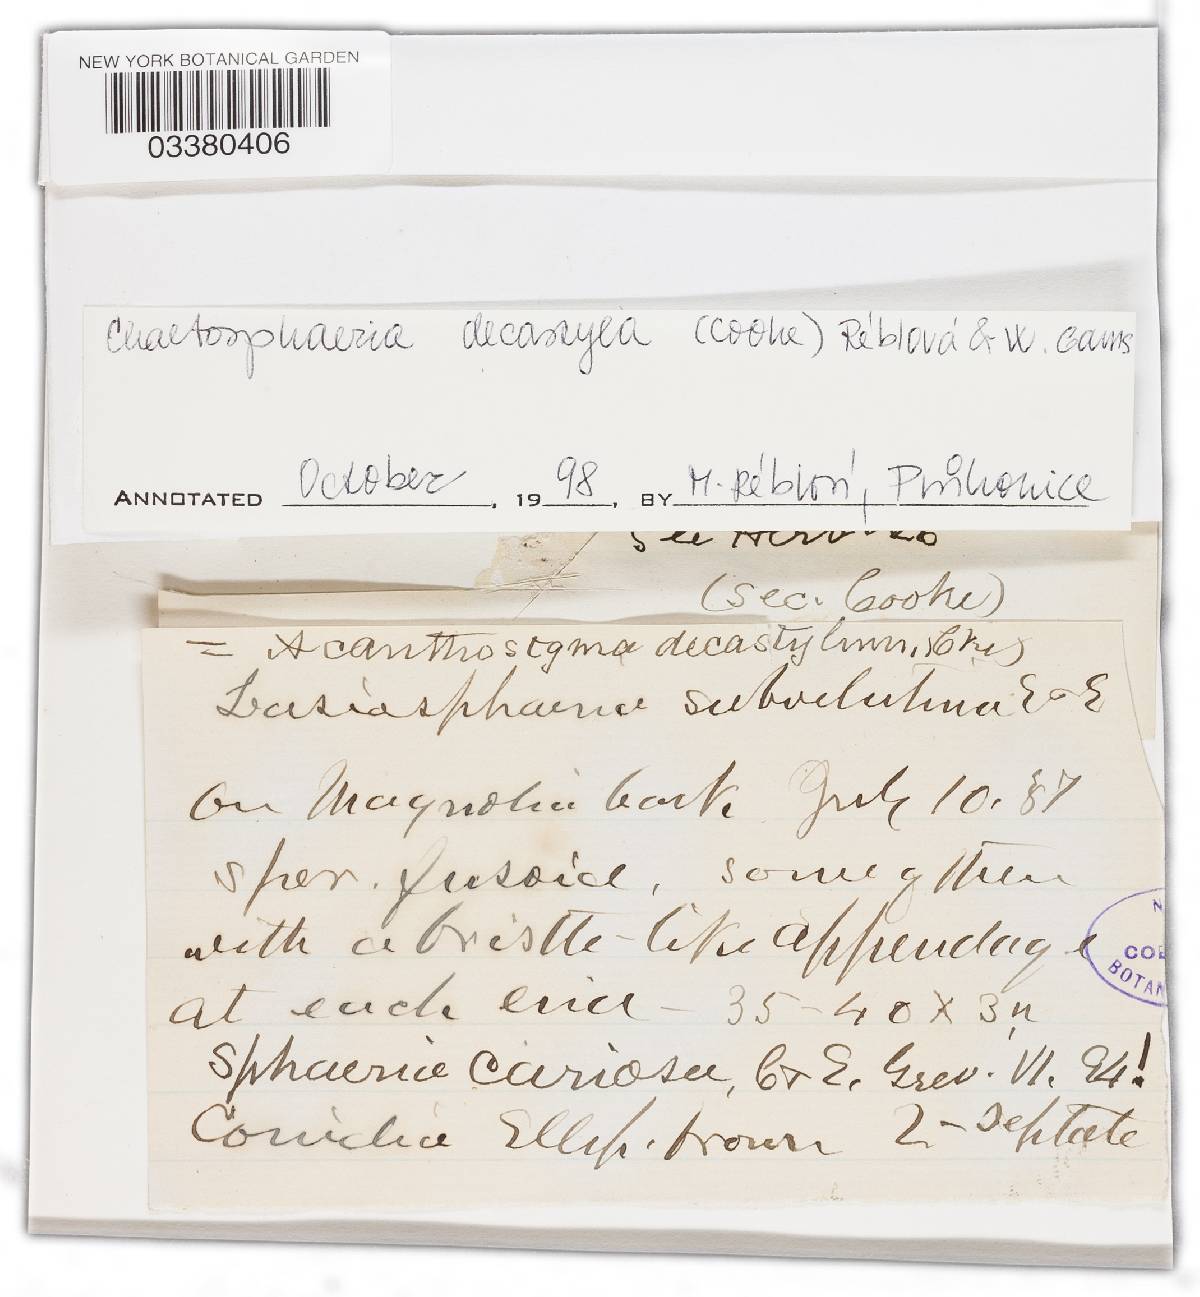 NEW YORK BOTANICAL GARDEN
03380406
Chaetosphaeria decastyla (Cooke) Réblová & W. Gams
ANNOTATED October, 1998, BY M. Réblová, Průhonice
See
(sec. Cooke)
= Acanthostigma decastylum, (Cke)
Lasiosphaeria subvelutina E & E
on Magnolia bark July 10. 87
spor. fusoid, some of them
with a bristle-like appendage
at each end - 35-40 x 3 µ
Sphaeria cariosa, C & E. Grev. VI. 94!
Conidia Ellip. brown 2-septate
N
COL
BOTAN